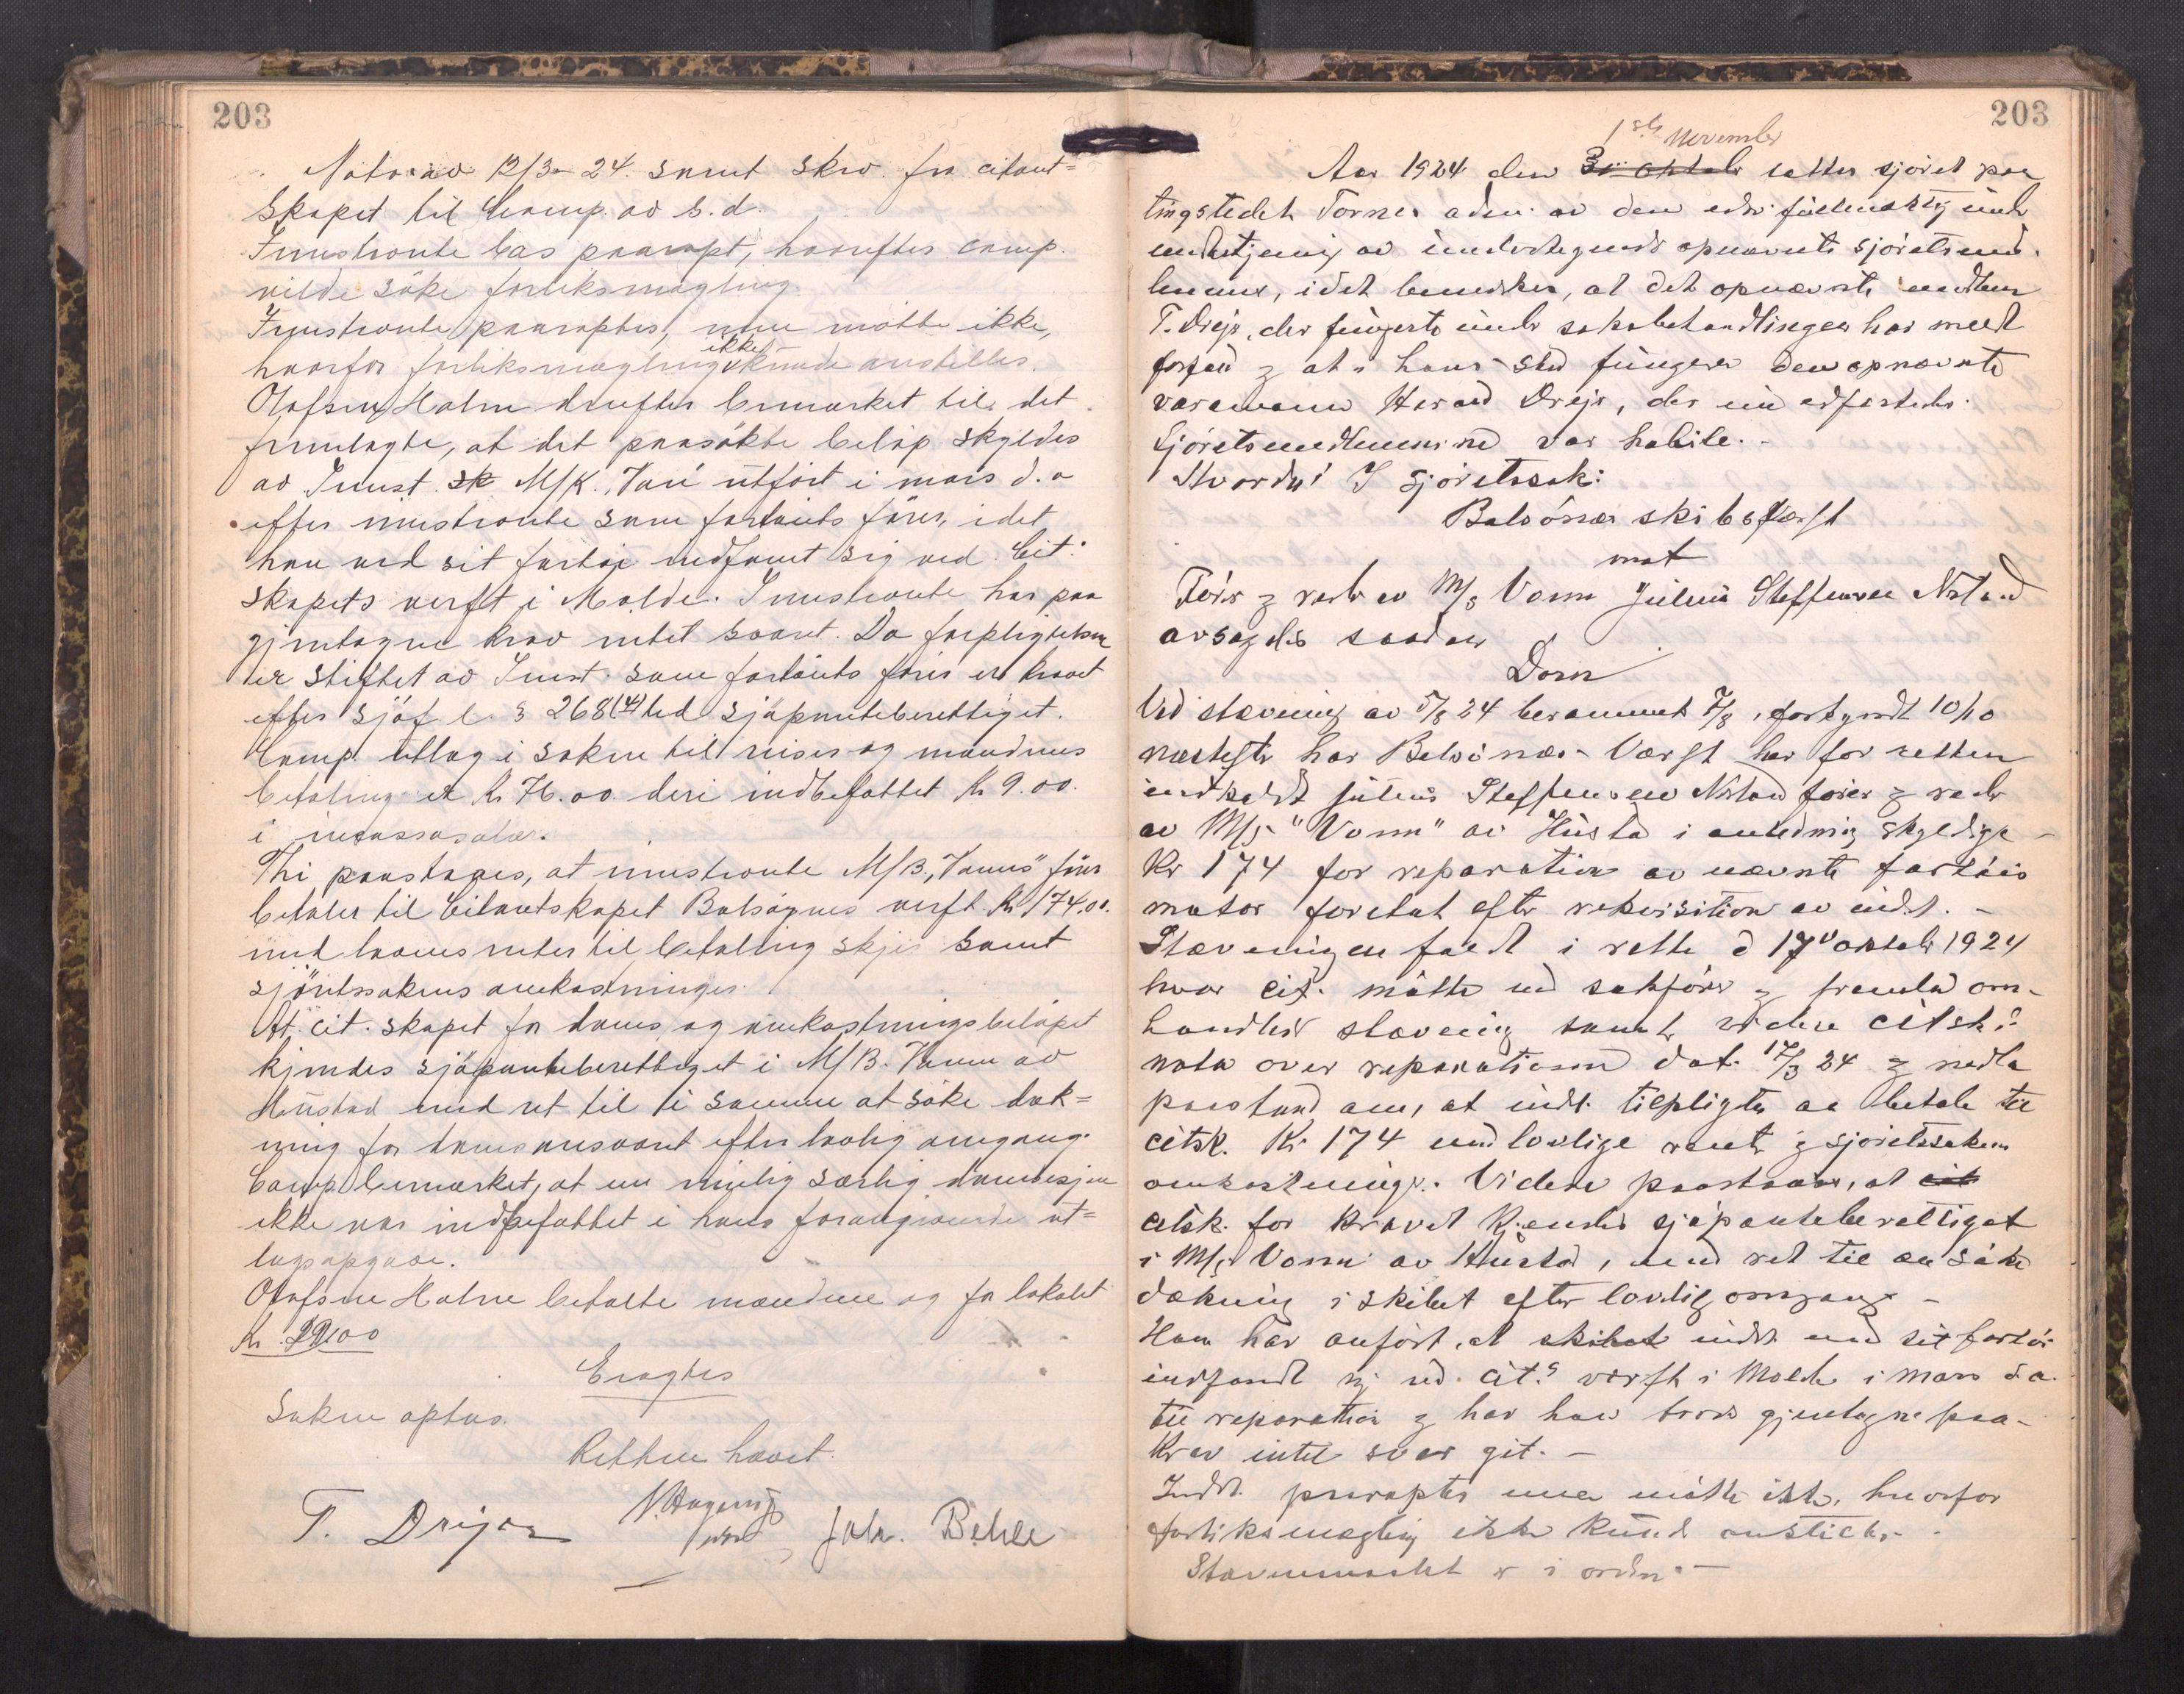 203
Nota av 12/3-24 samt skr. fra citant=
skapet til Comp. av s.d.
Innstevnte bas paaropt, hvorefter comp.
vilde söke forliksmægling.
Innstevnte paaroptes, men mötte ikke,
hvorfor forliksmægling ikke kunde anstilles.
Olafsen Holm derefter bemærket til det
fremlagte, at det paasökte belöp skyldes
av Innst. M/K. utfört i mars d.a
efter innstevnte som fartöiets förer, idet
han med sit fartöi indfant sig ved Cit.
skapets verft i Molde. Innstevnte har paa
gjentagne krav intet svaret. Da forpligtelsen
er stiftet av Innst. som fartöiets förer er kravet
efter Sjöf. l. § 268 (4) led sjöpanteberettiget.
Comp. utlæg i saken til reiser og mændenes
betaling er Kr 76.00 deri indbefattet Kr 9.00
i incassosalær.
Thi paastaaes, at innstevnte M/B. förer
betaler til Citantskapet Bolsönes verft Kr 174,00.
med lovens renter til betaling skjer samt
sjöretssakens omkostninger.
At cit. skapet for doms og omkostningsbelöpet
kjendes sjöpanteberettiget i M/B. Vonn av
Hustad med ret til i samme at söke dæk=
ning for domsansvaret efter lovlig omgang.
Comp. bemærket, at en mulig særlig
ikke var indbefattet i hans forangivende ut=
lægsopgave.
Olafsen Holm betalte mændene og for lokalet
Kr.
Eragtes
Saken optas.
Retten hævet.
T. Drejer
Joh. Behle
203
1ste November
Aar 1924 den 31 oktober sattes sjöret paa
tingstedet Tornes adm. av den edsv. fuldmægtig under
medvirkning av undertegnede opnævnte sjöretsmed-
lemmer, idet bemerkes, at det opnævnte medlem
T. Drejer, der fungerte under saksbehandlingen har meldt
forfald og at i hans sted fungerer den opnævnte
varamann Harald Drejer, der
Sjöretsmedlemmerne var habile. -
Hvorda! I Sjöretssak:
Bolsönes skibsværft
mot
Förer og reder av M/s Vonn Julius Steffensen Nistad
avsagdes saadan
Dom
Ved stævning av 5/8 24 berammet 7/8, forkyndt 10/10
næstefter har Bolsönes Værft her for retten
indkaldt Julius Steffensen Nistad förer og reder
av M/s "Vonn" av Hustad i anledning skyldige
Kr 174 for reparation av nævnte fartöis
motor foretat efter rekvisition av indst. -
Stævningen faldt i rette d 17de oktober 1924
hvor cit. mötte ved sakförer og fremla om-
handlede stævning samt videre citsk.s
nota over reparationen dat. 12/3 24 og nedla
paastand om, at indst. tilpligtes aa betale til
citsk. Kr 174 med lovlige renter og sjöretssakens
omkostninger. Videre paastaaes, at cit
citsk. for kravet kjendes sjöpanteberettiget
i M/s Vonn av Hustad, med ret til aa söke
dækning i skibet efter lovlig omgang -
Han har anfört, at skibet indst. med sit fartöi
indfandt sig ved cit.s værft i Molde i mars d.a.
til reparation og har han trods gjentagne paa-
krav intet svar git. -
Indst. paaroptes men mötte ikke, hvorfor
forliksmægling ikke kunde anstilles. -
Stævnemaalet er i orden. -